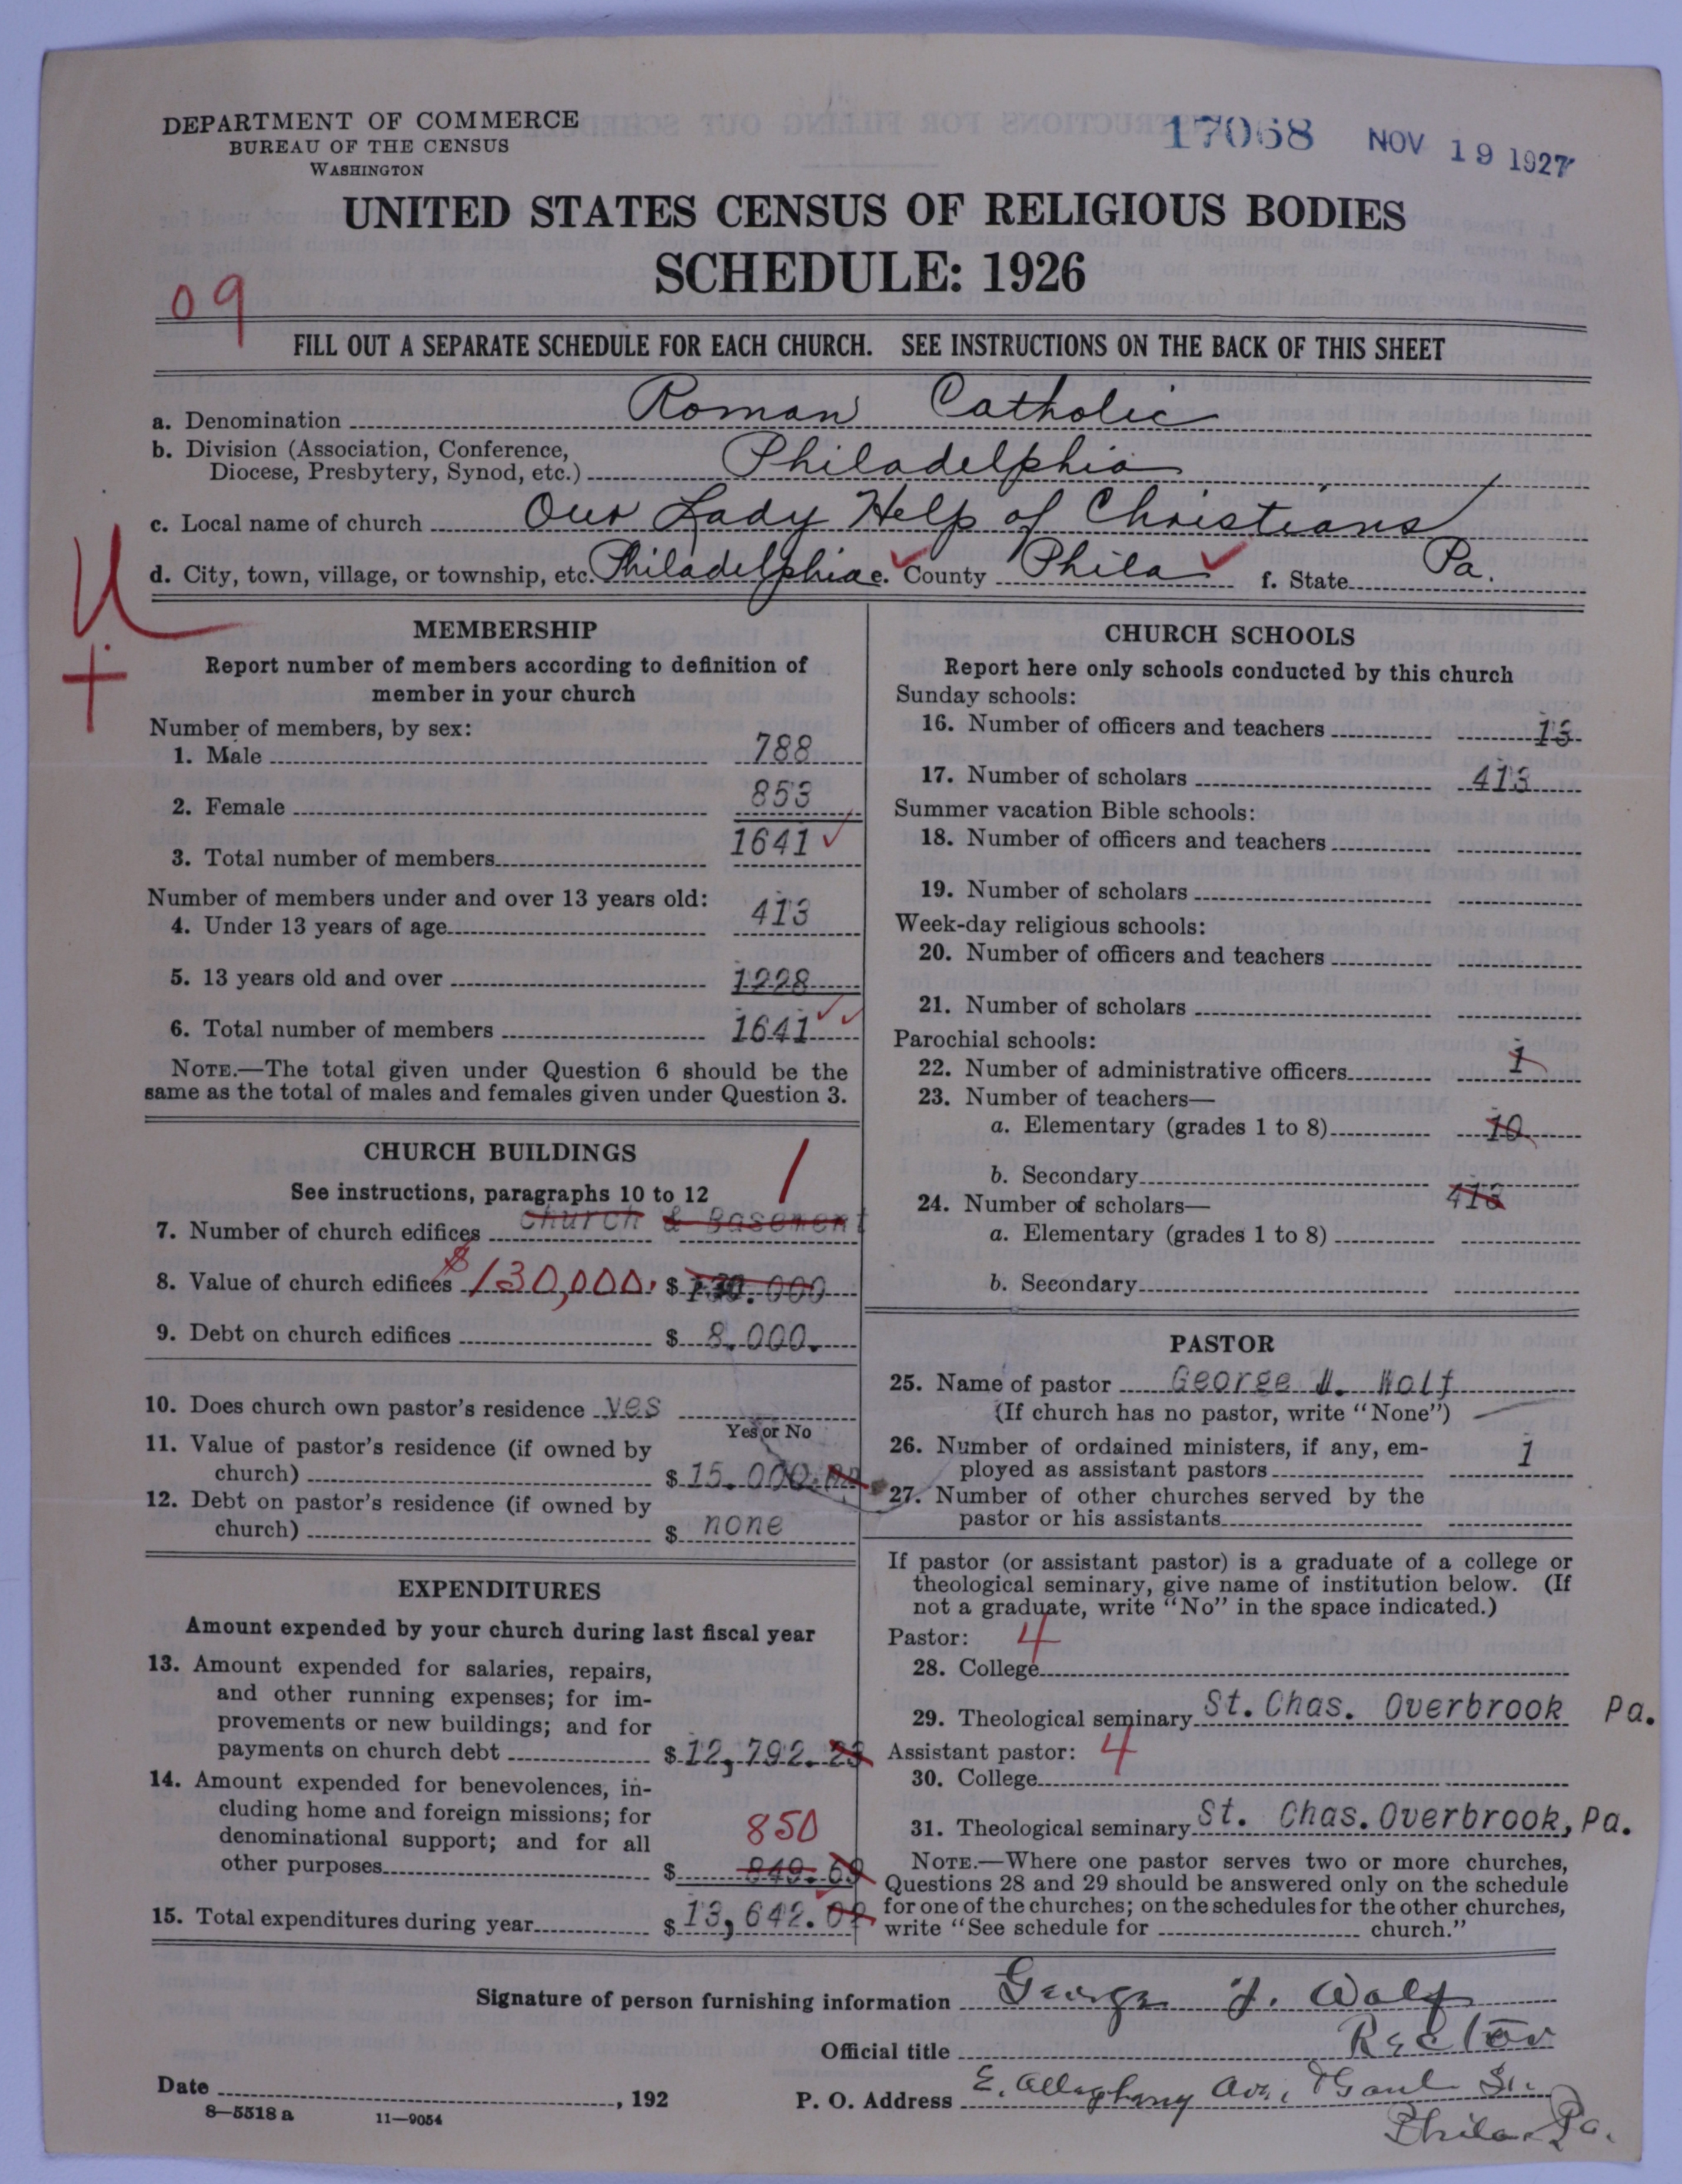 DEPARTMENT OF COMMERCE
BUREAU OF THE CENSUS
WASHINGTON
17068 NOV 19 1927
UNITED STATES CENSUS OF RELIGIOUS BODIES
SCHEDULE: 1926
09
FILL OUT A SEPARATE SCHEDULE FOR EACH CHURCH. SEE INSTRUCTIONS ON THE BACK OF THIS SHEET
a. Denomination Roman Catholic
b. Division (Association, Conference,
Diocese, Presbytery, Synod, etc.) Philadelphia
c. Local name of church Our Lady Help of Christians
d. City, town, village, or township, etc. Philadelphia e. County Phila f. State Pa.
U
+
MEMBERSHIP
Report number of members according to definition of
member in your church
Number of members, by sex:
1. Male 788
2. Female 853
3. Total number of members 1641
Number of members under and over 13 years old:
4. Under 13 years of age 413
5. 13 years old and over 1228
6. Total number of members 1641
NOTE.—The total given under Question 6 should be the
same as the total of males and females given under Question 3.
CHURCH BUILDINGS
See instructions, paragraphs 10 to 12 1
7. Number of church edifices church & Basement
8. Value of church edifices $130,000. $ 130.000
9. Debt on church edifices $ 8.000.
10. Does church own pastor's residence yes
Yes or No
11. Value of pastor's residence (if owned by
church) $ 15.000.00
12. Debt on pastor's residence (if owned by
church) $ none
EXPENDITURES
Amount expended by your church during last fiscal year
13. Amount expended for salaries, repairs,
and other running expenses; for im-
provements or new buildings; and for
payments on church debt $ 12,792.23
14. Amount expended for benevolences, in-
cluding home and foreign missions; for
denominational support; and for all 850
other purposes $ 849.69
15. Total expenditures during year $ 13,642.02
CHURCH SCHOOLS
Report here only schools conducted by this church
Sunday schools:
16. Number of officers and teachers 13
17. Number of scholars 413
Summer vacation Bible schools:
18. Number of officers and teachers
19. Number of scholars
Week-day religious schools:
20. Number of officers and teachers
21. Number of scholars
Parochial schools:
22. Number of administrative officers 1
23. Number of teachers—
a. Elementary (grades 1 to 8) 10
b. Secondary
24. Number of scholars— 413
a. Elementary (grades 1 to 8)
b. Secondary
PASTOR
25. Name of pastor George Wolf
(If church has no pastor, write "None")
26. Number of ordained ministers, if any, em-
ployed as assistant pastors 1
27. Number of other churches served by the
pastor or his assistants
If pastor (or assistant pastor) is a graduate of a college or
theological seminary, give name of institution below. (If
not a graduate, write "No" in the space indicated.)
Pastor: 4
28. College
29. Theological seminary St. Chas. Overbrook Pa.
Assistant pastor: 4
30. College
31. Theological seminary St. Chas. Overbrook, Pa.
NOTE.—Where one pastor serves two or more churches,
Questions 28 and 29 should be answered only on the schedule
for one of the churches; on the schedules for the other churches,
write "See schedule for church."
Signature of person furnishing information George J. Wolf
Official title Rector
Date , 192 P. O. Address E. Allegheny Ave., & Gaul St.
8—5518 a 11—9054
Phila. Pa.